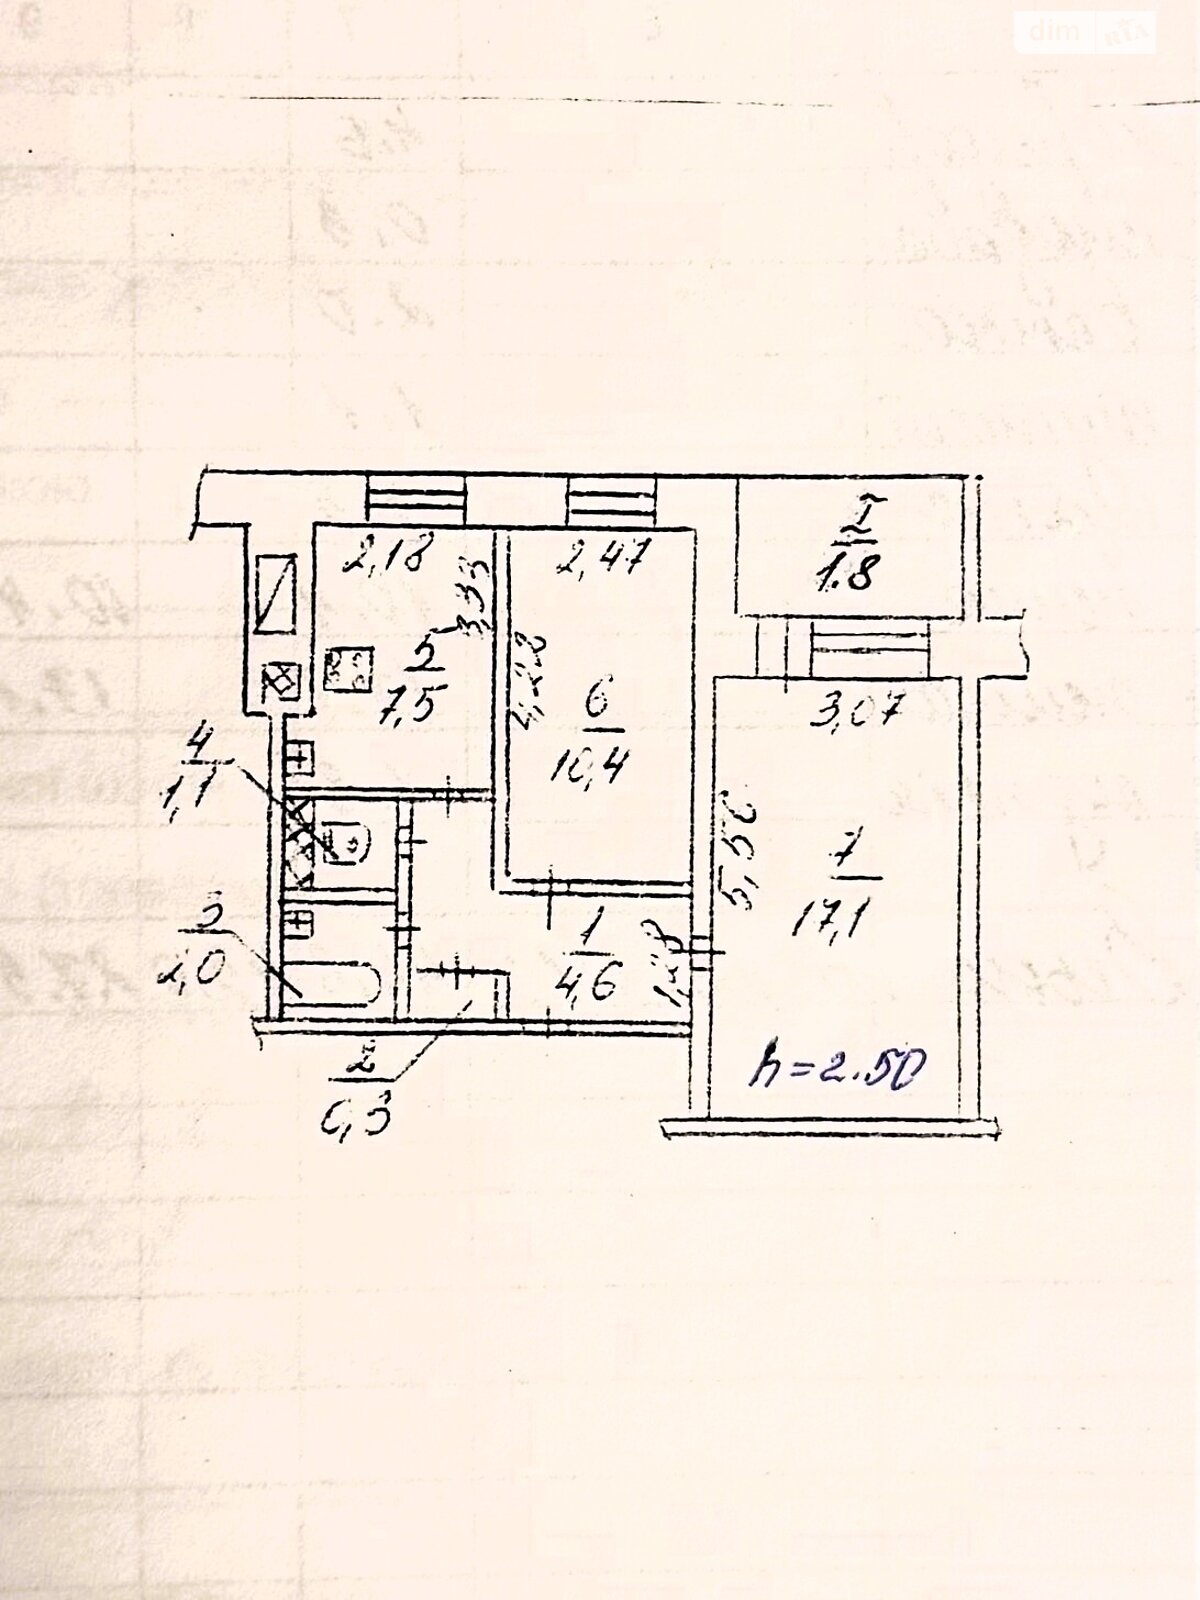 dim
RIA
2,18
3,33
2,47
I
1.8
5
7,5
4,22
6
10,4
3,07
4
1,1
5,56
7
17,1
3
2,0
1
4,6
1,28
2
0,3
h=2.50